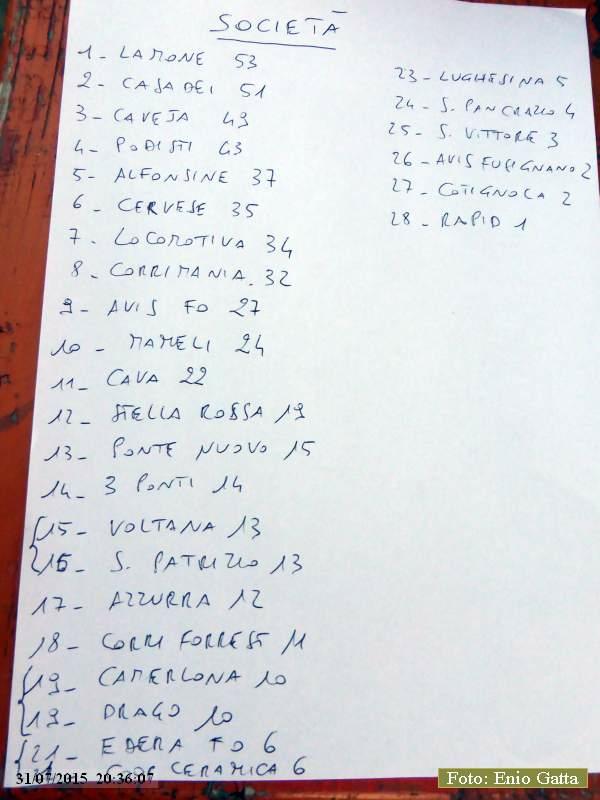 SOCIETÀ
1 - LAMONE 53
2 - CASADEI 51
3 - CAVEJA 49
4 - PODISTI 43
5 - ALFONSINE 37
6 - CERVESE 35
7 - LOCOMOTIVA 34
8 - CORRIMANIA. 32
9 - AVIS FO 27
10 - MAMELI 24
11 - CAVA 22
12 - STELLA ROSSA 19
13 - PONTE NUOVO 15
14 - 3 PONTI 14
15 - VOLTANA 13
16 - S. PATRIZIO 13
17 - AZZURRA 12
18 - CORRI FORREST 11
19 - CAMERLONA 10
19 - DRAGO 10
21 - EDERA FO 6
21 - COOP CERAMICA 6
23 - LUGHESINA 5
24 - S. PANCRAZIO 4
25 - S. VITTORE 3
26 - AVIS FUSIGNANO 2
27 - COTIGNOLA 2
28 - RAPID 1
31/07/2015 20:36:07
Foto: Enio Gatta